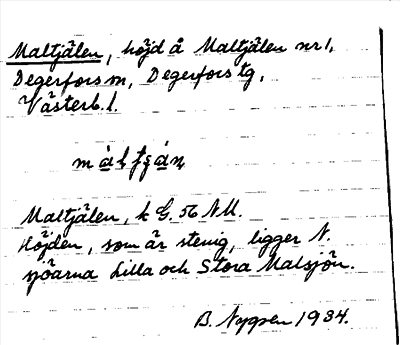 Maltjälen, höjd å Maltjälen nr 1,
Degerfors sn, Degerfors tg,
Västerb. l.
Maltjälen, k G. 56 NU.
Höjden, som är stenig, ligger N.
sjöarna Lilla och Stora Malsjön.
B. 1934.